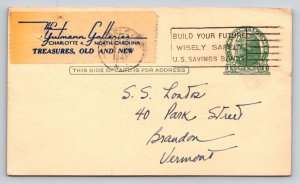 Gutmann Galleries
CHARLOTTE 4, NORTH CAROLINA
TREASURES, OLD AND NEW
BUILD YOUR FUTURE
WISELY SAFELY
U.S. SAVINGS BONDS
THIS SIDE OF CARD IS FOR ADDRESS
S. S. Lontos
40 Park Street
Brandon
Vermont